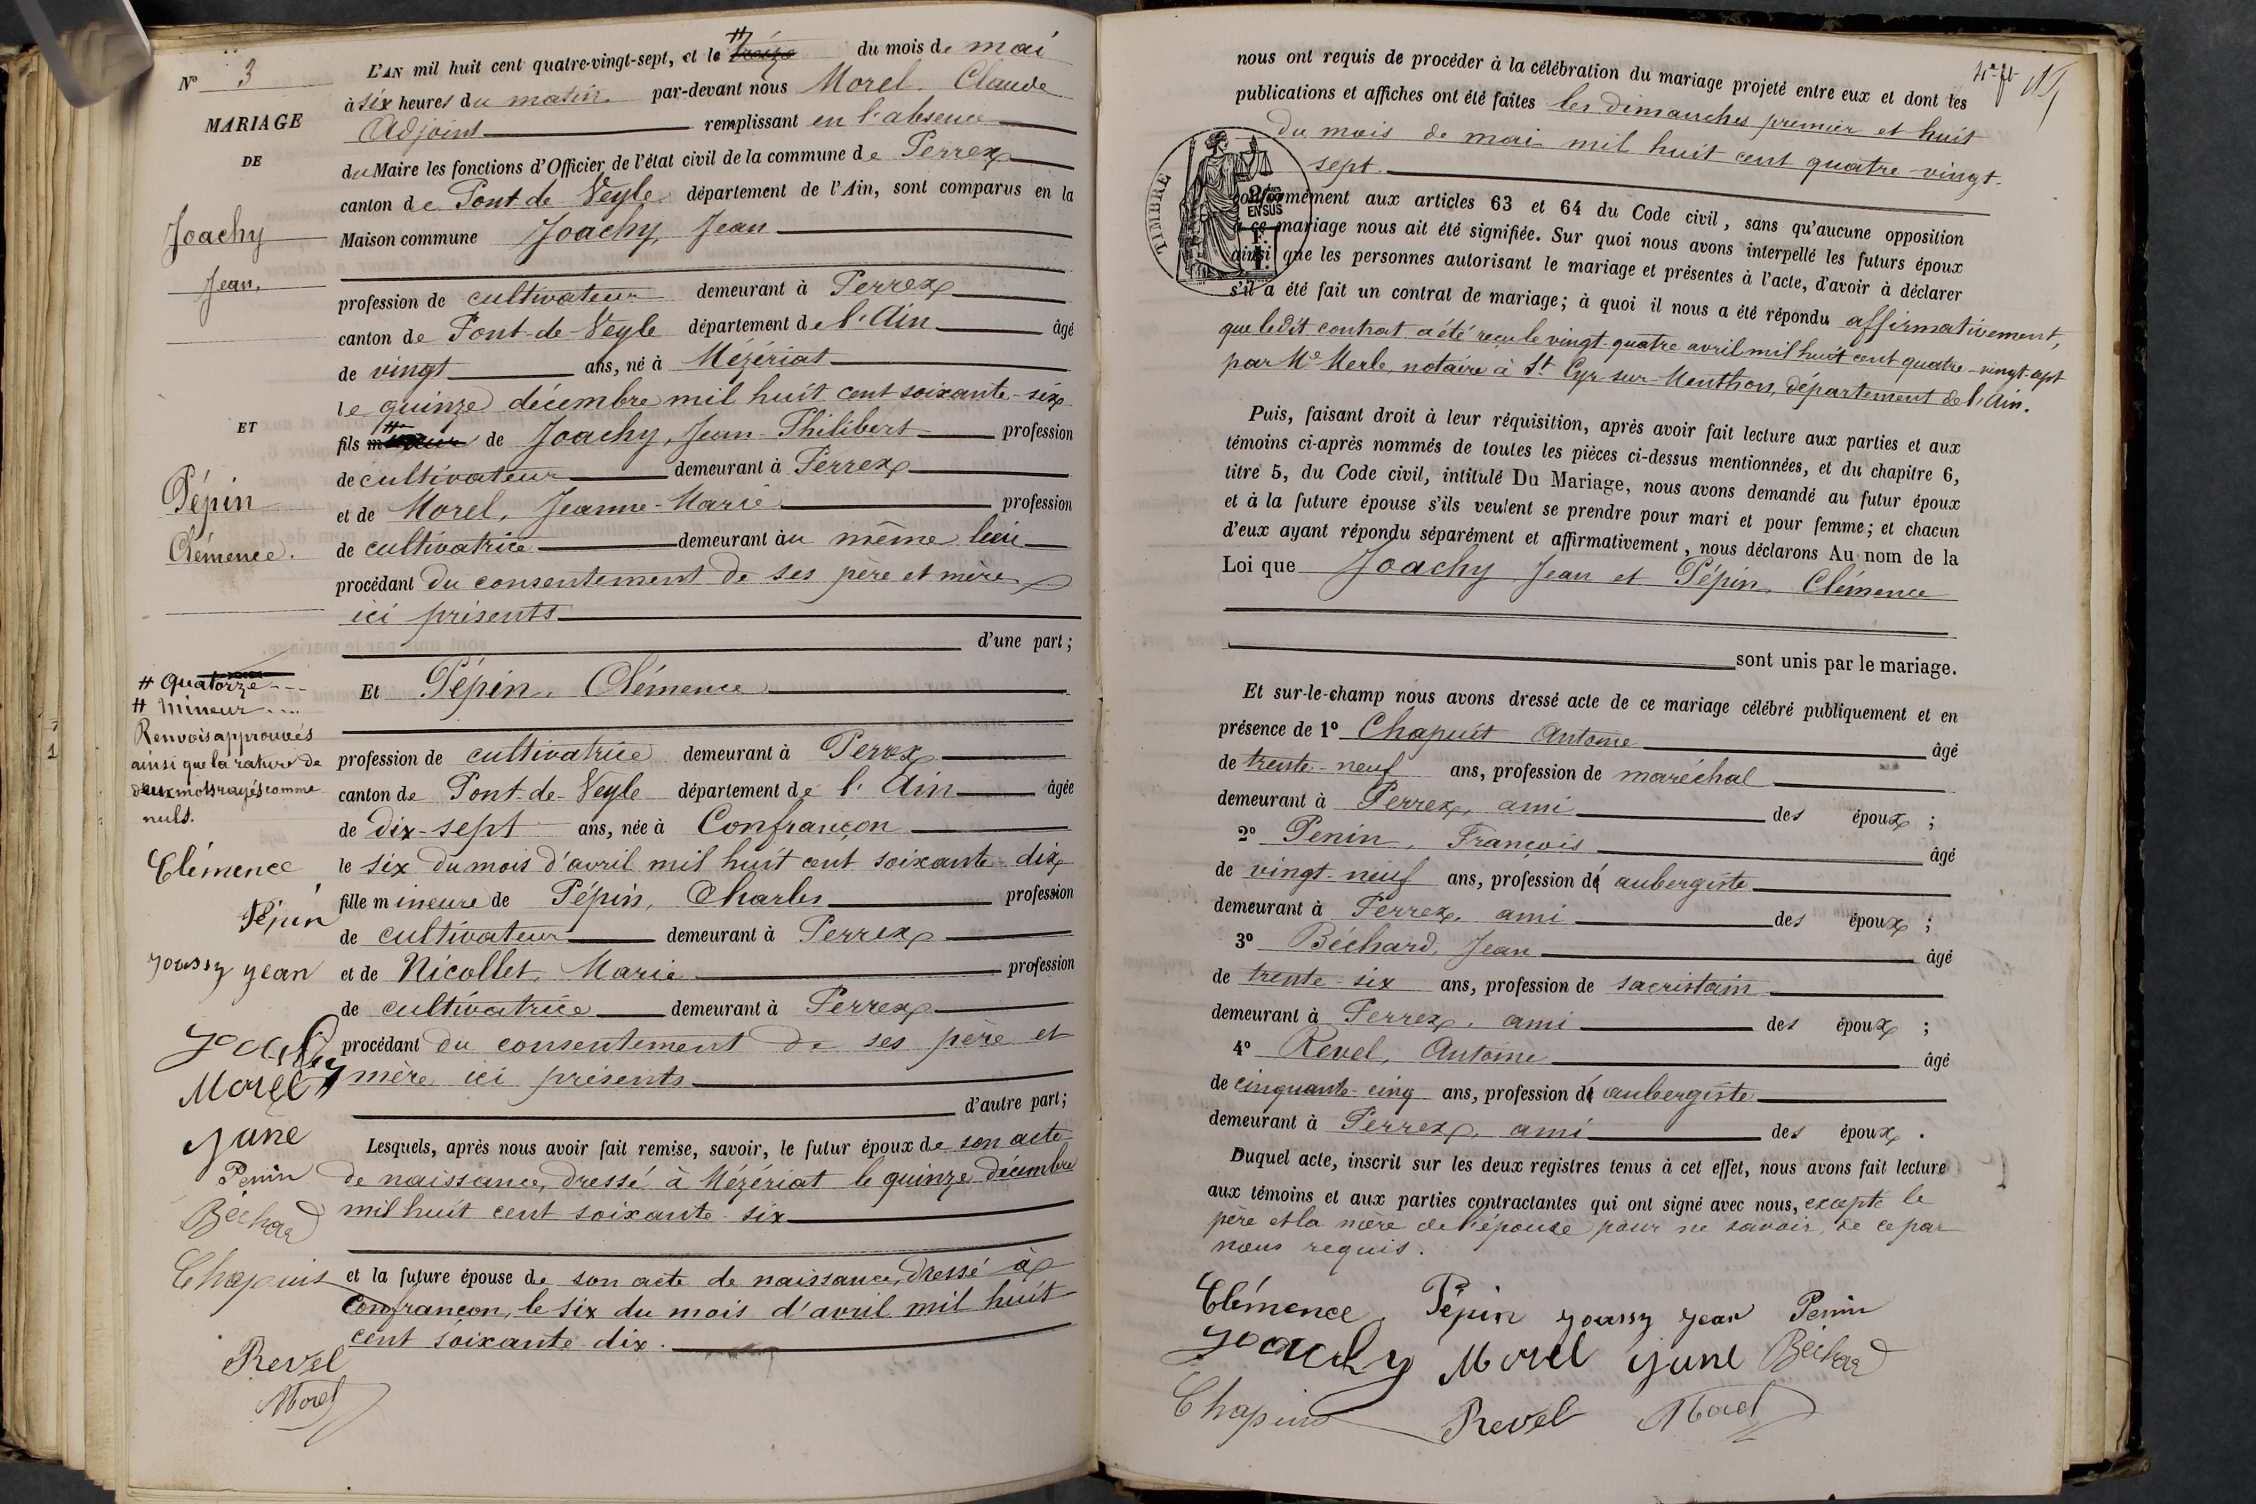 N° 3
MARIAGE
DE
Joachy
Jean.
ET
Pépin
Clémence.
# quatorze
# mineur
Renvois approuvés
ainsi que la rature de
deux mots rayés comme
nuls.
Clémence
Pépin
joassy jean
Joachy
Morel
jane
Penin
Béchard
Chapuis
Revel
Morel
L'AN mil huit cent quatre-vingt-sept, et le # treize du mois de mai
à six heures du matin par-devant nous Morel Claude
Adjoint remplissant en l'absence
du Maire les fonctions d'Officier de l'état civil de la commune de Perrex
canton de Pont-de-Veyle département de l'Ain, sont comparus en la
Maison commune Joachy, Jean
profession de cultivateur demeurant à Perrex
canton de Pont-de-Veyle département de l'Ain âgé
de vingt ans, né à Mézériat
le quinze décembre mil huit cent soixante-six
fils # de Joachy, Jean-Philibert profession
de cultivateur demeurant à Perrex
et de Morel, Jeanne-Marie profession
de cultivatrice demeurant au même lieu
procédant du consentement de ses père et mère
ici présents
d'une part;
Et Pépin, Clémence
profession de cultivatrice demeurant à Perrex
canton de Pont-de-Veyle département de l'Ain âgée
de dix-sept ans, née à Confrançon
le six du mois d'avril mil huit cent soixante-dix
fille mineure de Pépin, Charles profession
de cultivateur demeurant à Perrex
et de Nicollet, Marie profession
de cultivatrice demeurant à Perrex
procédant du consentement de ses père et
mère ici présents
d'autre part;
Lesquels, après nous avoir fait remise, savoir, le futur époux de son acte
de naissance, dressé à Mézériat le quinze décembre
mil huit cent soixante-six
et la future épouse de son acte de naissance, dressé à
Confrançon, le six du mois d'avril mil huit
cent soixante-dix.
nous ont requis de procéder à la célébration du mariage projeté entre eux et dont les
publications et affiches ont été faites les dimanches premier et huit
du mois de mai mil huit cent quatre-vingt-
sept.
TIMBRE
2/10es
EN SUS
conformément aux articles 63 et 64 du Code civil, sans qu'aucune opposition
à ce mariage nous ait été signifiée. Sur quoi nous avons interpellé les futurs époux
ainsi que les personnes autorisant le mariage et présentes à l'acte, d'avoir à déclarer
s'il a été fait un contrat de mariage; à quoi il nous a été répondu affirmativement,
que ledit contrat a été reçu le vingt-quatre avril mil huit cent quatre-vingt-sept
par Me Merle, notaire à St Cyr-sur-Menthon, département de l'Ain.
Puis, faisant droit à leur réquisition, après avoir fait lecture aux parties et aux
témoins ci-après nommés de toutes les pièces ci-dessus mentionnées, et du chapitre 6,
titre 5, du Code civil, intitulé Du Mariage, nous avons demandé au futur époux
et à la future épouse s'ils veulent se prendre pour mari et pour femme; et chacun
d'eux ayant répondu séparément et affirmativement, nous déclarons Au nom de la
Loi que Joachy Jean et Pépin, Clémence
sont unis par le mariage.
Et sur-le-champ nous avons dressé acte de ce mariage célébré publiquement et en
présence de 1° Chapuit Antoine âgé
de trente-neuf ans, profession de maréchal
demeurant à Perrex, ami des époux;
2° Penin, François âgé
de vingt-neuf ans, profession d'aubergiste
demeurant à Perrex, ami des époux;
3° Béchard, Jean âgé
de trente-six ans, profession de sacristain
demeurant à Perrex, ami des époux;
4° Revel, Antoine âgé
de cinquante-cinq ans, profession d'aubergiste
demeurant à Perrex, ami des époux.
Duquel acte, inscrit sur les deux registres tenus à cet effet, nous avons fait lecture
aux témoins et aux parties contractantes qui ont signé avec nous, excepté le
père et la mère de l'épouse pour ne savoir, de ce par
nous requis.
Clémence Pépin joassy jean Penin
Joachy Morel jane Béchard
Chapuis Revel Morel